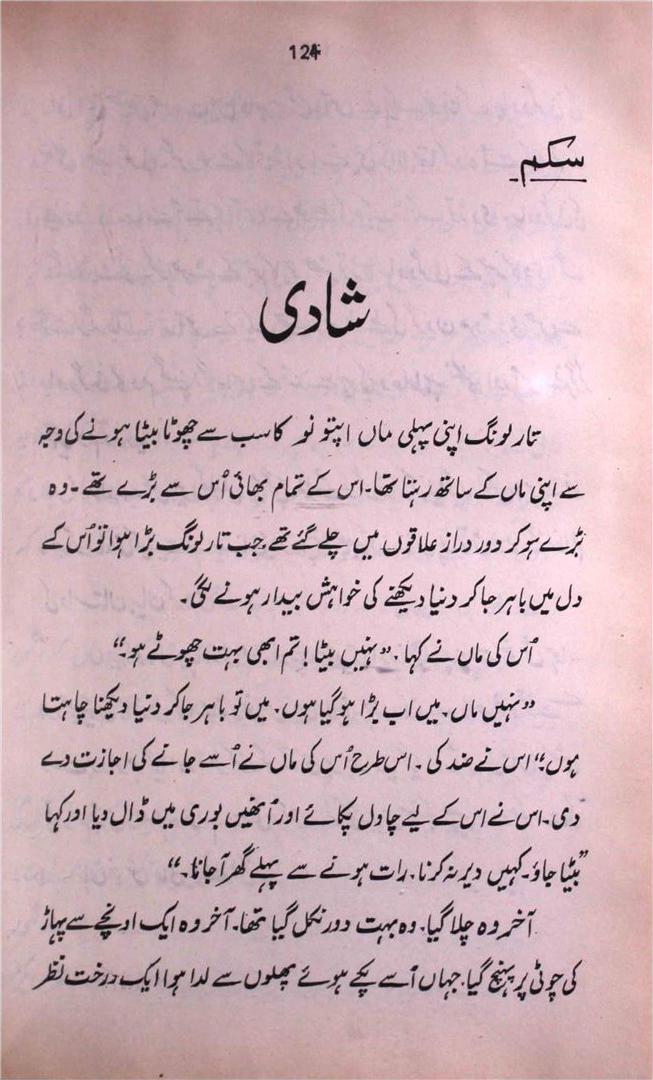 124
سکم
شادی
تارلونگ اپنی پہلی ماں اپتو نو کا سب سے چھوٹا بیٹا ہونے کی وجہ
سے اپنی ماں کے ساتھ رہتا تھا۔ اس کے تمام بھائی اُس سے بڑے تھے۔ وہ
بڑے ہوکر دور دراز علاقوں میں چلے گئے تھے۔ جب تارلونگ بڑا ہوا تو اُس کے
دل میں باہر جاکر دنیا دیکھنے کی خواہش بیدار ہونے لگی۔
اُس کی ماں نے کہا۔ ”نہیں بیٹا! تم ابھی بہت چھوٹے ہو۔“
”نہیں ماں۔ میں اب بڑا ہوگیا ہوں۔ میں تو باہر جاکر دنیا دیکھنا چاہتا
ہوں۔“ اس نے ضد کی۔ اس طرح اُس کی ماں نے اُسے جانے کی اجازت دے
دی۔ اس نے اس کے لیے چاول پکائے اور اُنھیں بوری میں ڈال دیا اور کہا
”بیٹا جاؤ۔ کہیں دیر نہ کرنا۔ رات ہونے سے پہلے گھر آجانا۔“
آخر وہ چلا گیا۔ وہ بہت دور نکل گیا تھا۔ آخر وہ ایک اونچے سے پہاڑ
کی چوٹی پر پہنچ گیا۔ جہاں اُسے پکے ہوئے پھلوں سے لدا ہوا ایک درخت نظر